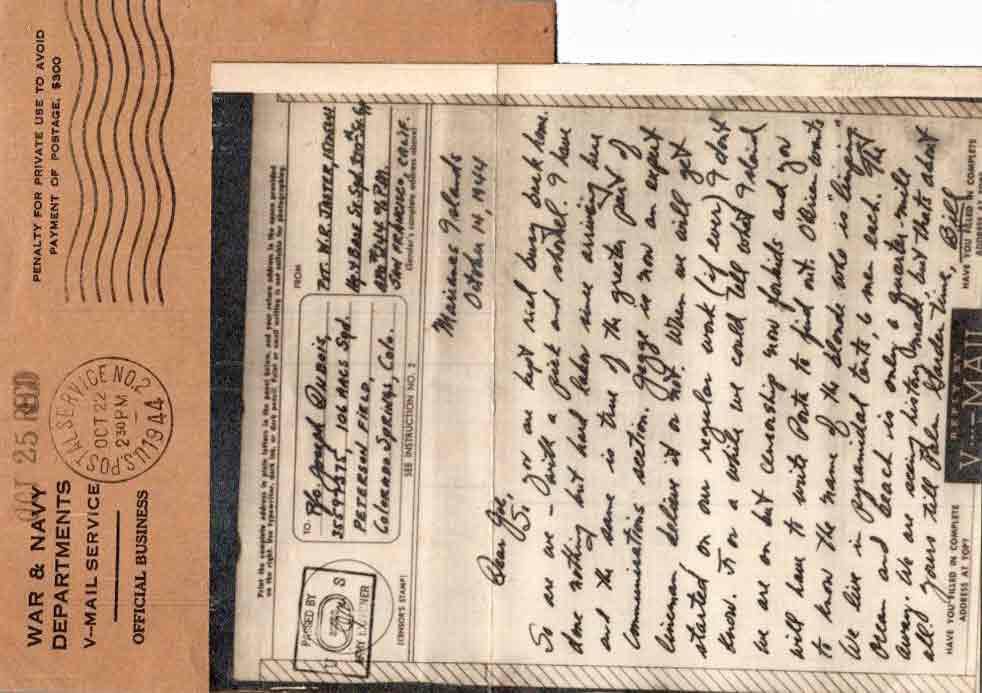 WAR & NAVY
DEPARTMENTS
V--MAIL SERVICE
OFFICIAL BUSINESS
OCT 25 RECD
U.S. POSTAL SERVICE NO. 2
OCT 22
230 PM
1944
PENALTY FOR PRIVATE USE TO AVOID
PAYMENT OF POSTAGE, $300
Print the complete address in plain letters in the panel below, and your return address in the space provided
on the right. Use typewriter, dark ink, or dark pencil. Faint or small writing is not suitable for photographing.
PASSED BY
U S
ARMY EXAMINER
(CENSOR'S STAMP)
TO
Pfc. Joseph Dubois,
106 AACS Sqd.
PETERSON FIELD,
Colorado Springs, Colo.
SEE INSTRUCTION NO. 2
FROM
PVT. W.R. JASTER,
Hq. & Base Sv. Sqd.
APO #244 % P.M.
SAN FRANCISCO, CALIF.
(Sender's complete address above)
Marianas Islands
October 14, 1944
Dear Joe,
So you are kept real busy back home.
So are we - with a pick and shovel. I have
done nothing but hard labor since arriving here
and the same is true of the greater part of
Communications section. is now an expert
lineman believe it or not. When we will get
started on our regular work (if ever) I dont
know. For a while we could tell what island
we are on but censorship now forbids and you
will have to write to find out. O'Brien wants
to know the name of the blonde who is
We live in pyramidal tents, 6 men each. The
Ocean and beach is only a quarter-mile
away. We are seeing history made but thats about
all. Yours till Palm Garden time, Bill
HAVE YOU FILLED IN COMPLETE
ADDRESS AT TOP?
REPLY BY
V···MAIL
HAVE YOU FILLED IN COMPLETE
ADDRESS AT TOP?